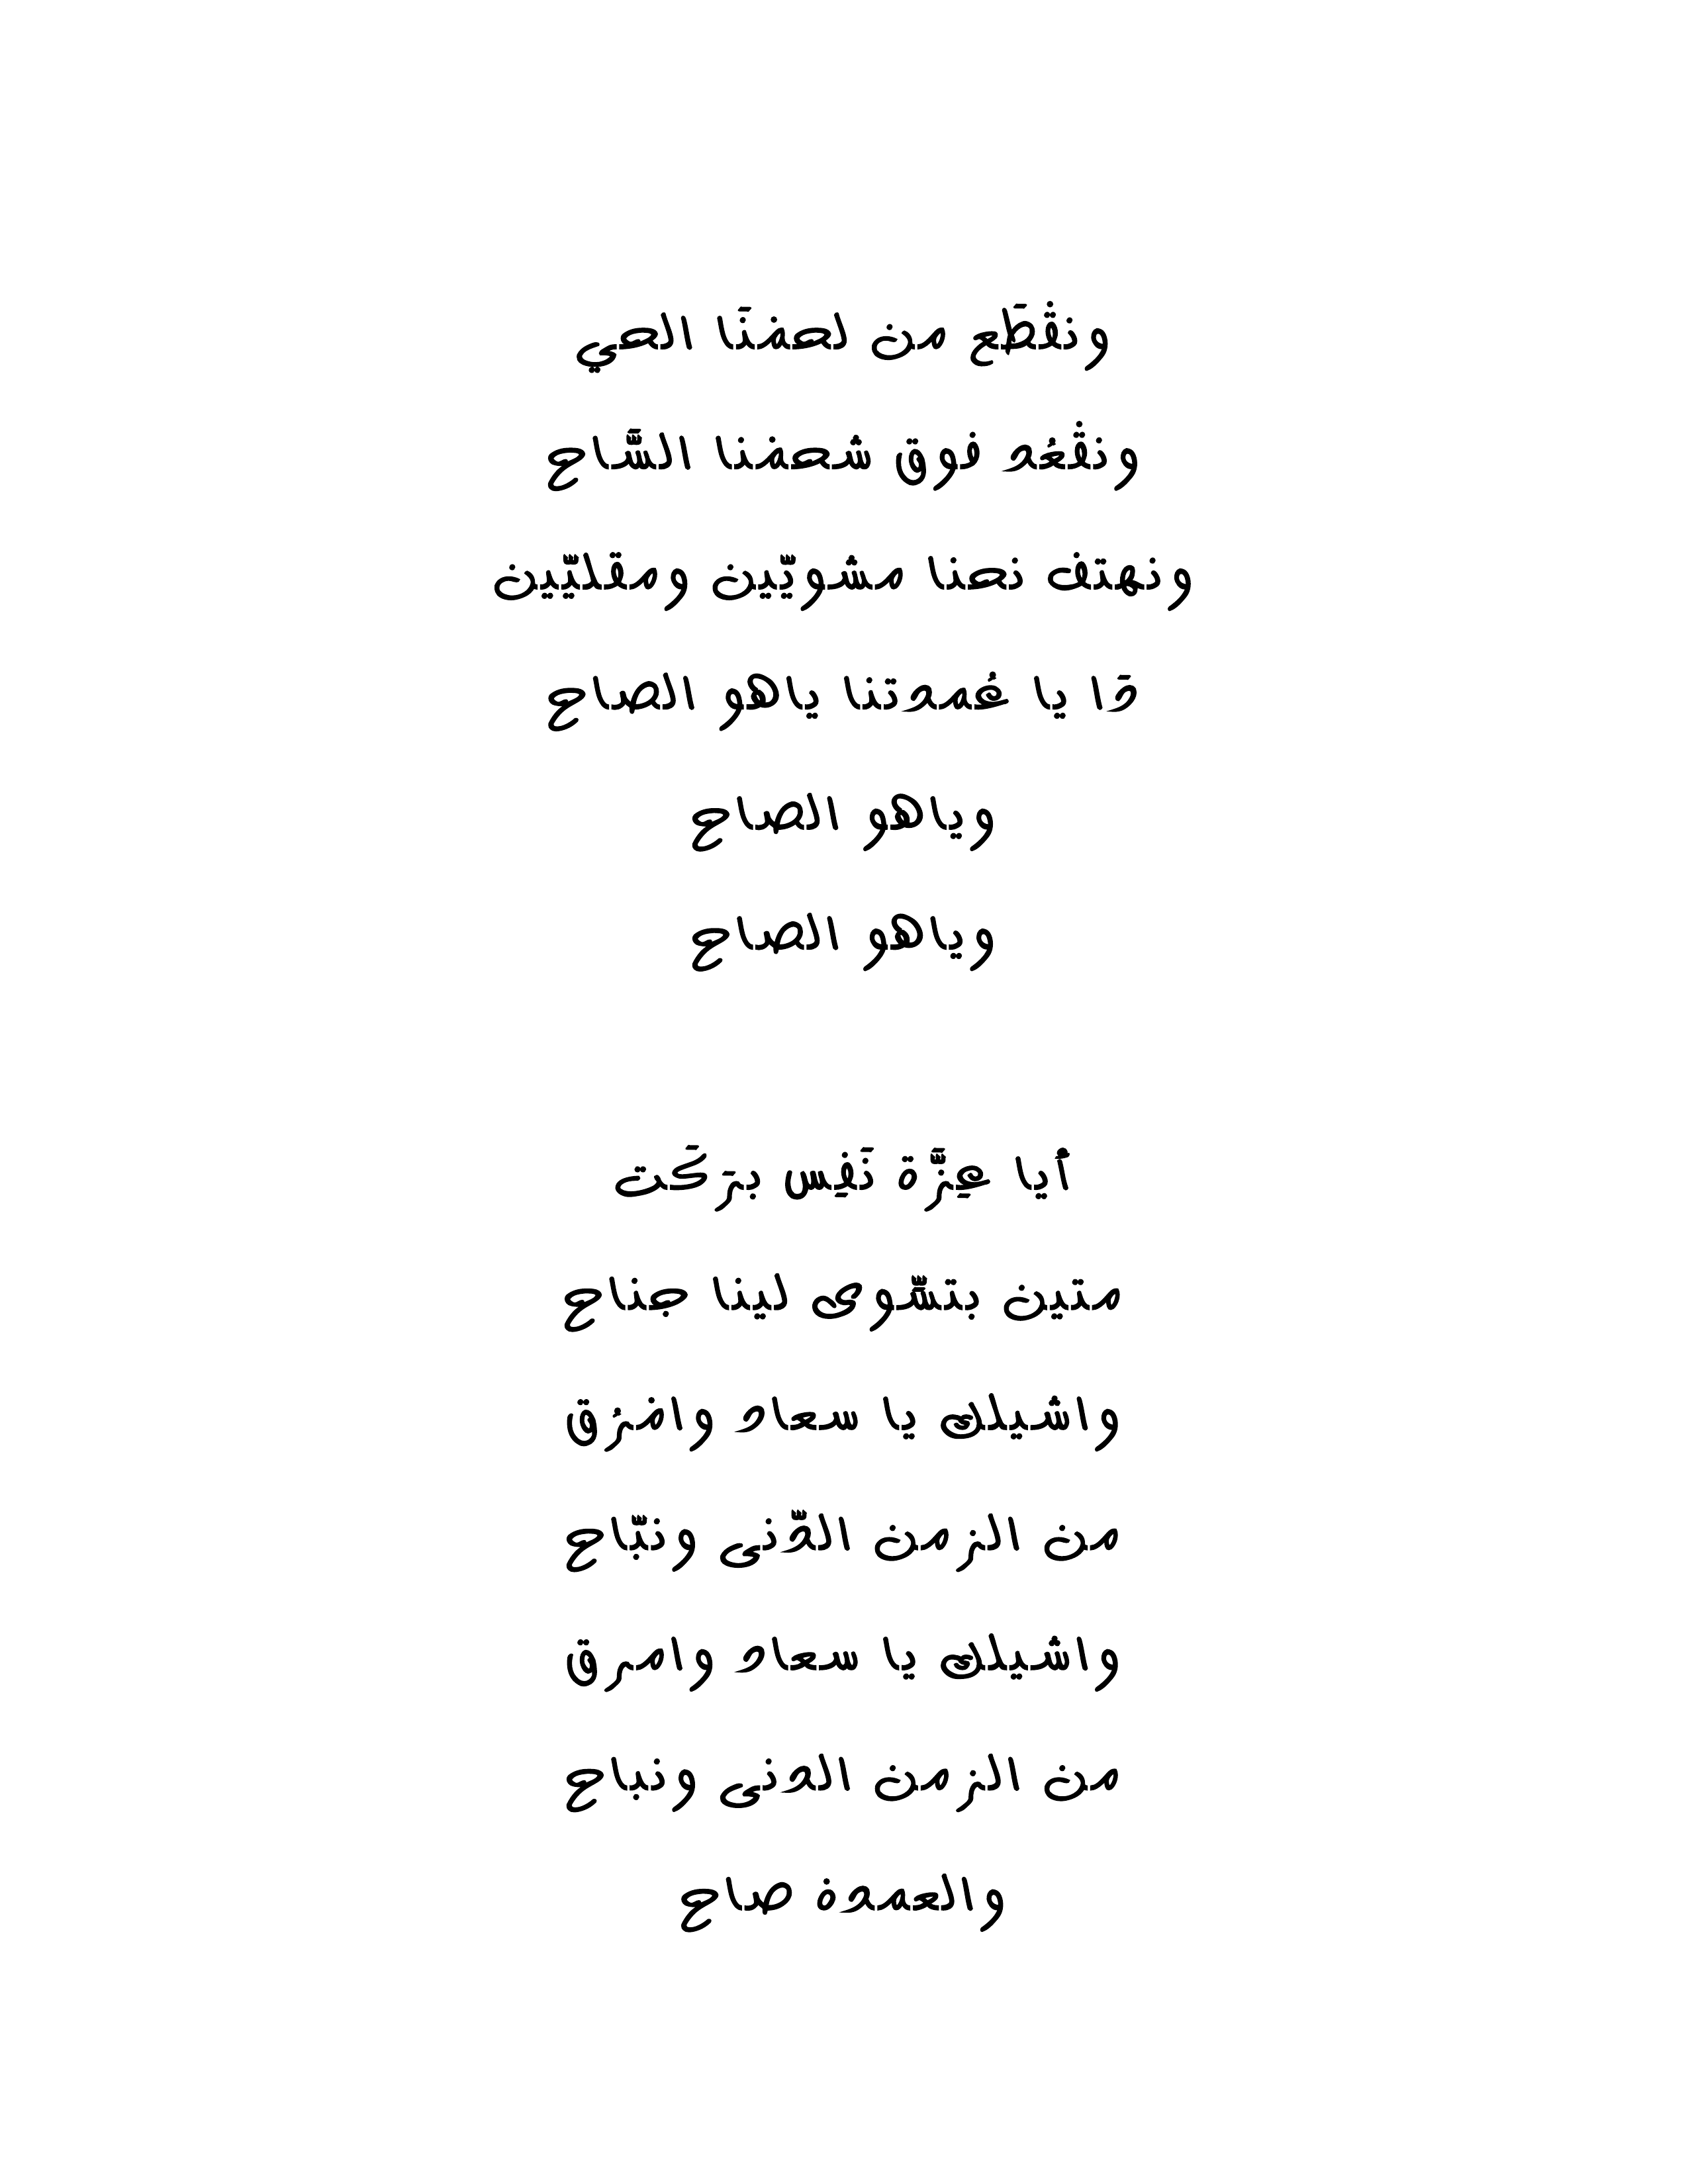 ونقْطَع من لحمْنَا الحي
ونقْعُد فوق شحمْنا السَّاح
ونهتف نحنا مشويّين ومقليّين
دَا يا عُمدتنا ياهو الصاح
وياهو الصاح
وياهو الصاح
أيا عِزَّة نَفِس بترَكَت
متين بتسَّوى لينا جناح
واشيلك يا سعاد وامْرُق
من الزمن الدَّنى ونبّاح
واشيلك يا سعاد وامرق
من الزمن الدنى ونباح
والعمدة صاح